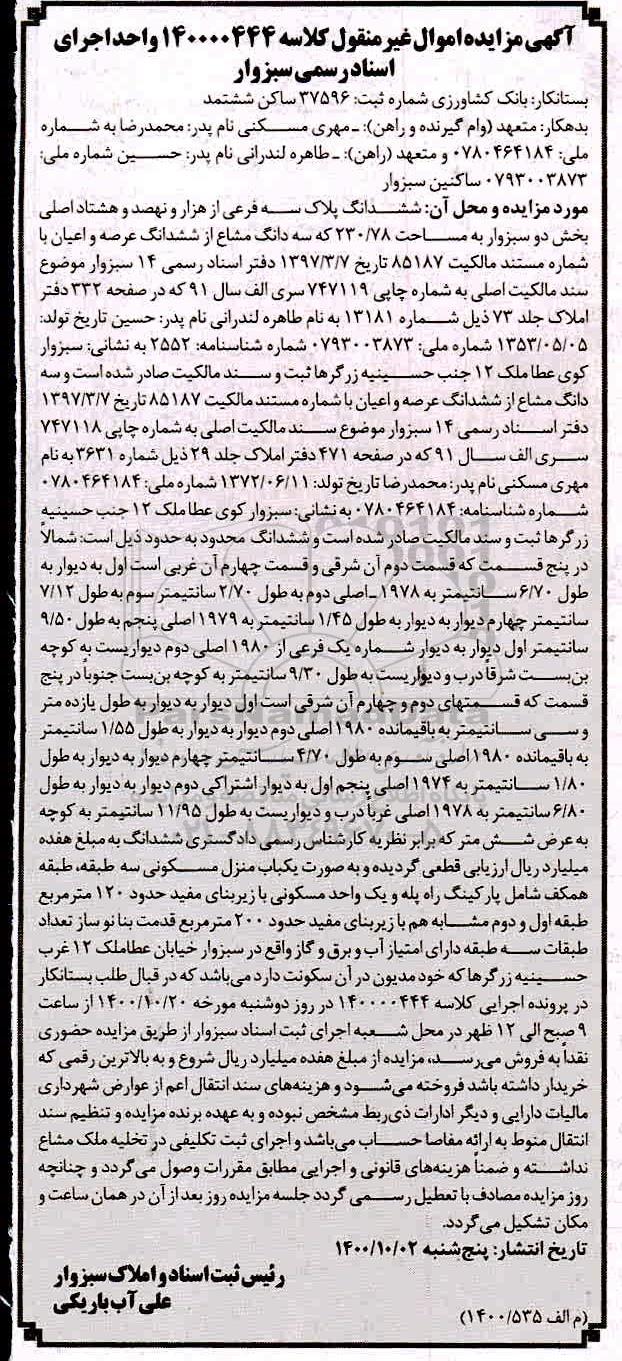 آگهی مزایده اموال غیر منقول کلاسه ۱۴۰۰۰۰۴۴۴ واحد اجرای
اسناد رسمی سبزوار
بستانکار: بانک کشاورزی شماره ثبت: ۳۷۵۹۶ ساکن ششتمد
بدهکار: متعهد (وام گیرنده و راهن): ـ مهری مسکنی نام پدر: محمدرضا به شماره
ملی: ۰۷۸۰۴۶۴۱۸۴ و متعهد (راهن): ـ طاهره لندرانی نام پدر: حسین شماره ملی:
۰۷۹۳۰۰۳۸۷۳ ساکنین سبزوار
مورد مزایده و محل آن: ششدانگ پلاک سه فرعی از هزار و نهصد و هشتاد اصلی
بخش دو سبزوار به مساحت ۲۳۰/۷۸ که سه دانگ مشاع از ششدانگ عرصه و اعیان با
شماره مستند مالکیت ۸۵۱۸۷ تاریخ ۱۳۹۷/۳/۷ دفتر اسناد رسمی ۱۴ سبزوار موضوع
سند مالکیت اصلی به شماره چاپی ۷۴۷۱۱۹ سری الف سال ۹۱ که در صفحه ۳۳۲ دفتر
املاک جلد ۷۳ ذیل شماره ۱۳۱۸۱ به نام طاهره لندرانی نام پدر: حسین تاریخ تولد:
۱۳۵۳/۰۵/۰۵ شماره ملی: ۰۷۹۳۰۰۳۸۷۳ شماره شناسنامه: ۲۵۵۲ به نشانی: سبزوار
کوی عطا ملک ۱۲ جنب حسینیه زرگرها ثبت و سند مالکیت صادر شده است و سه
دانگ مشاع از ششدانگ عرصه و اعیان با شماره مستند مالکیت ۸۵۱۸۷ تاریخ ۱۳۹۷/۳/۷
دفتر اسناد رسمی ۱۴ سبزوار موضوع سند مالکیت اصلی به شماره چاپی ۷۴۷۱۱۸
سری الف سال ۹۱ که در صفحه ۴۷۱ دفتر املاک جلد ۲۹ ذیل شماره ۳۶۳۱ به نام
مهری مسکنی نام پدر: محمدرضا تاریخ تولد: ۱۳۷۲/۰۶/۱۱ شماره ملی: ۰۷۸۰۴۶۴۱۸۴
شماره شناسنامه: ۰۷۸۰۴۶۴۱۸۴ به نشانی: سبزوار کوی عطا ملک ۱۲ جنب حسینیه
زرگرها ثبت و سند مالکیت صادر شده است و ششدانگ محدود به حدود ذیل است: شمالاً
در پنج قسمت که قسمت دوم آن شرقی و قسمت چهارم آن غربی است اول به دیوار به
طول ۶/۷۰ سانتیمتر به ۱۹۷۸ ـ اصلی دوم به طول ۲/۷۰ سانتیمتر سوم به طول ۷/۱۲
سانتیمتر چهارم دیوار به دیوار به طول ۱/۴۵ سانتیمتر به ۱۹۷۹ اصلی پنجم به طول ۹/۵۰
سانتیمتر اول دیوار به دیوار شماره یک فرعی از ۱۹۸۰ اصلی دوم دیواریست به کوچه
بن‌بست شرقاً درب و دیواریست به طول ۹/۳۰ سانتیمتر به کوچه بن‌بست جنوباً در پنج
قسمت که قسمتهای دوم و چهارم آن شرقی است اول دیوار به دیوار به طول یازده متر
و سی سانتیمتر به باقیمانده ۱۹۸۰ اصلی دوم دیوار به دیوار به طول ۱/۵۵ سانتیمتر
به باقیمانده ۱۹۸۰ اصلی سوم به طول ۴/۷۰ سانتیمتر چهارم دیوار به دیوار به طول
۱/۸۰ سانتیمتر به ۱۹۷۴ اصلی پنجم اول به دیوار اشتراکی دوم دیوار به دیوار به طول
۶/۸۰ سانتیمتر به ۱۹۷۸ اصلی غرباً درب و دیواریست به طول ۱۱/۹۵ سانتیمتر به کوچه
به عرض شش متر که برابر نظریه کارشناس رسمی دادگستری ششدانگ به مبلغ هفده
میلیارد ریال ارزیابی قطعی گردیده و به صورت یکباب منزل مسکونی سه طبقه، طبقه
همکف شامل پارکینگ راه پله و یک واحد مسکونی با زیربنای مفید حدود ۱۲۰ مترمربع
طبقه اول و دوم مشابه هم با زیربنای مفید حدود ۲۰۰ مترمربع قدمت بنا نو ساز تعداد
طبقات سه طبقه دارای امتیاز آب و برق و گاز واقع در سبزوار خیابان عطاملک ۱۲ غرب
حسینیه زرگرها که خود مدیون در آن سکونت دارد می‌باشد که در قبال طلب بستانکار
در پرونده اجرایی کلاسه ۱۴۰۰۰۰۴۴۴ در روز دوشنبه مورخه ۱۴۰۰/۱۰/۲۰ از ساعت
۹ صبح الی ۱۲ ظهر در محل شعبه اجرای ثبت اسناد سبزوار از طریق مزایده حضوری
نقداً به فروش می‌رسد، مزایده از مبلغ هفده میلیارد ریال شروع و به بالاترین رقمی که
خریدار داشته باشد فروخته می‌شود و هزینه‌های سند انتقال اعم از عوارض شهرداری
مالیات دارایی و دیگر ادارات ذی‌ربط مشخص نبوده و به عهده برنده مزایده و تنظیم سند
انتقال منوط به ارائه مفاصا حساب می‌باشد و اجرای ثبت تکلیفی در تخلیه ملک مشاع
نداشته و ضمناً هزینه‌های قانونی و اجرایی مطابق مقررات وصول می‌گردد و چنانچه
روز مزایده مصادف با تعطیل رسمی گردد جلسه مزایده روز بعد از آن در همان ساعت و
مکان تشکیل می‌گردد.
تاریخ انتشار: پنج‌شنبه ۱۴۰۰/۱۰/۰۲
رئیس ثبت اسناد و املاک سبزوار
علی آب باریکی
(م الف ۱۴۰۰/۵۳۵)